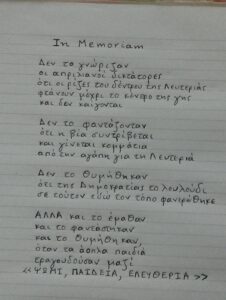 In Memoriam
Δεν το γνώριζαν
οι απριλιανοί δικτάτορες
ότι οι ρίζες του δέντρου της Λευτεριάς
φτάνουν μέχρι το κέντρο της γης
και δεν καίγονται
Δεν το φαντάζονταν
ότι η βία συντρίβεται
και γίνεται κομμάτια
από την αγάπη για τη Λευτεριά
Δεν το θυμήθηκαν
ότι της Δημοκρατίας το λουλούδι
σε τούτον εδώ τον τόπο φανερώθηκε
ΑΛΛΑ και το έμαθαν
και το φαντάστηκαν
και το θυμήθηκαν,
όταν τα άοπλα παιδιά
τραγουδούσαν μαζί
«ΨΩΜΙ, ΠΑΙΔΕΙΑ, ΕΛΕΥΘΕΡΙΑ»